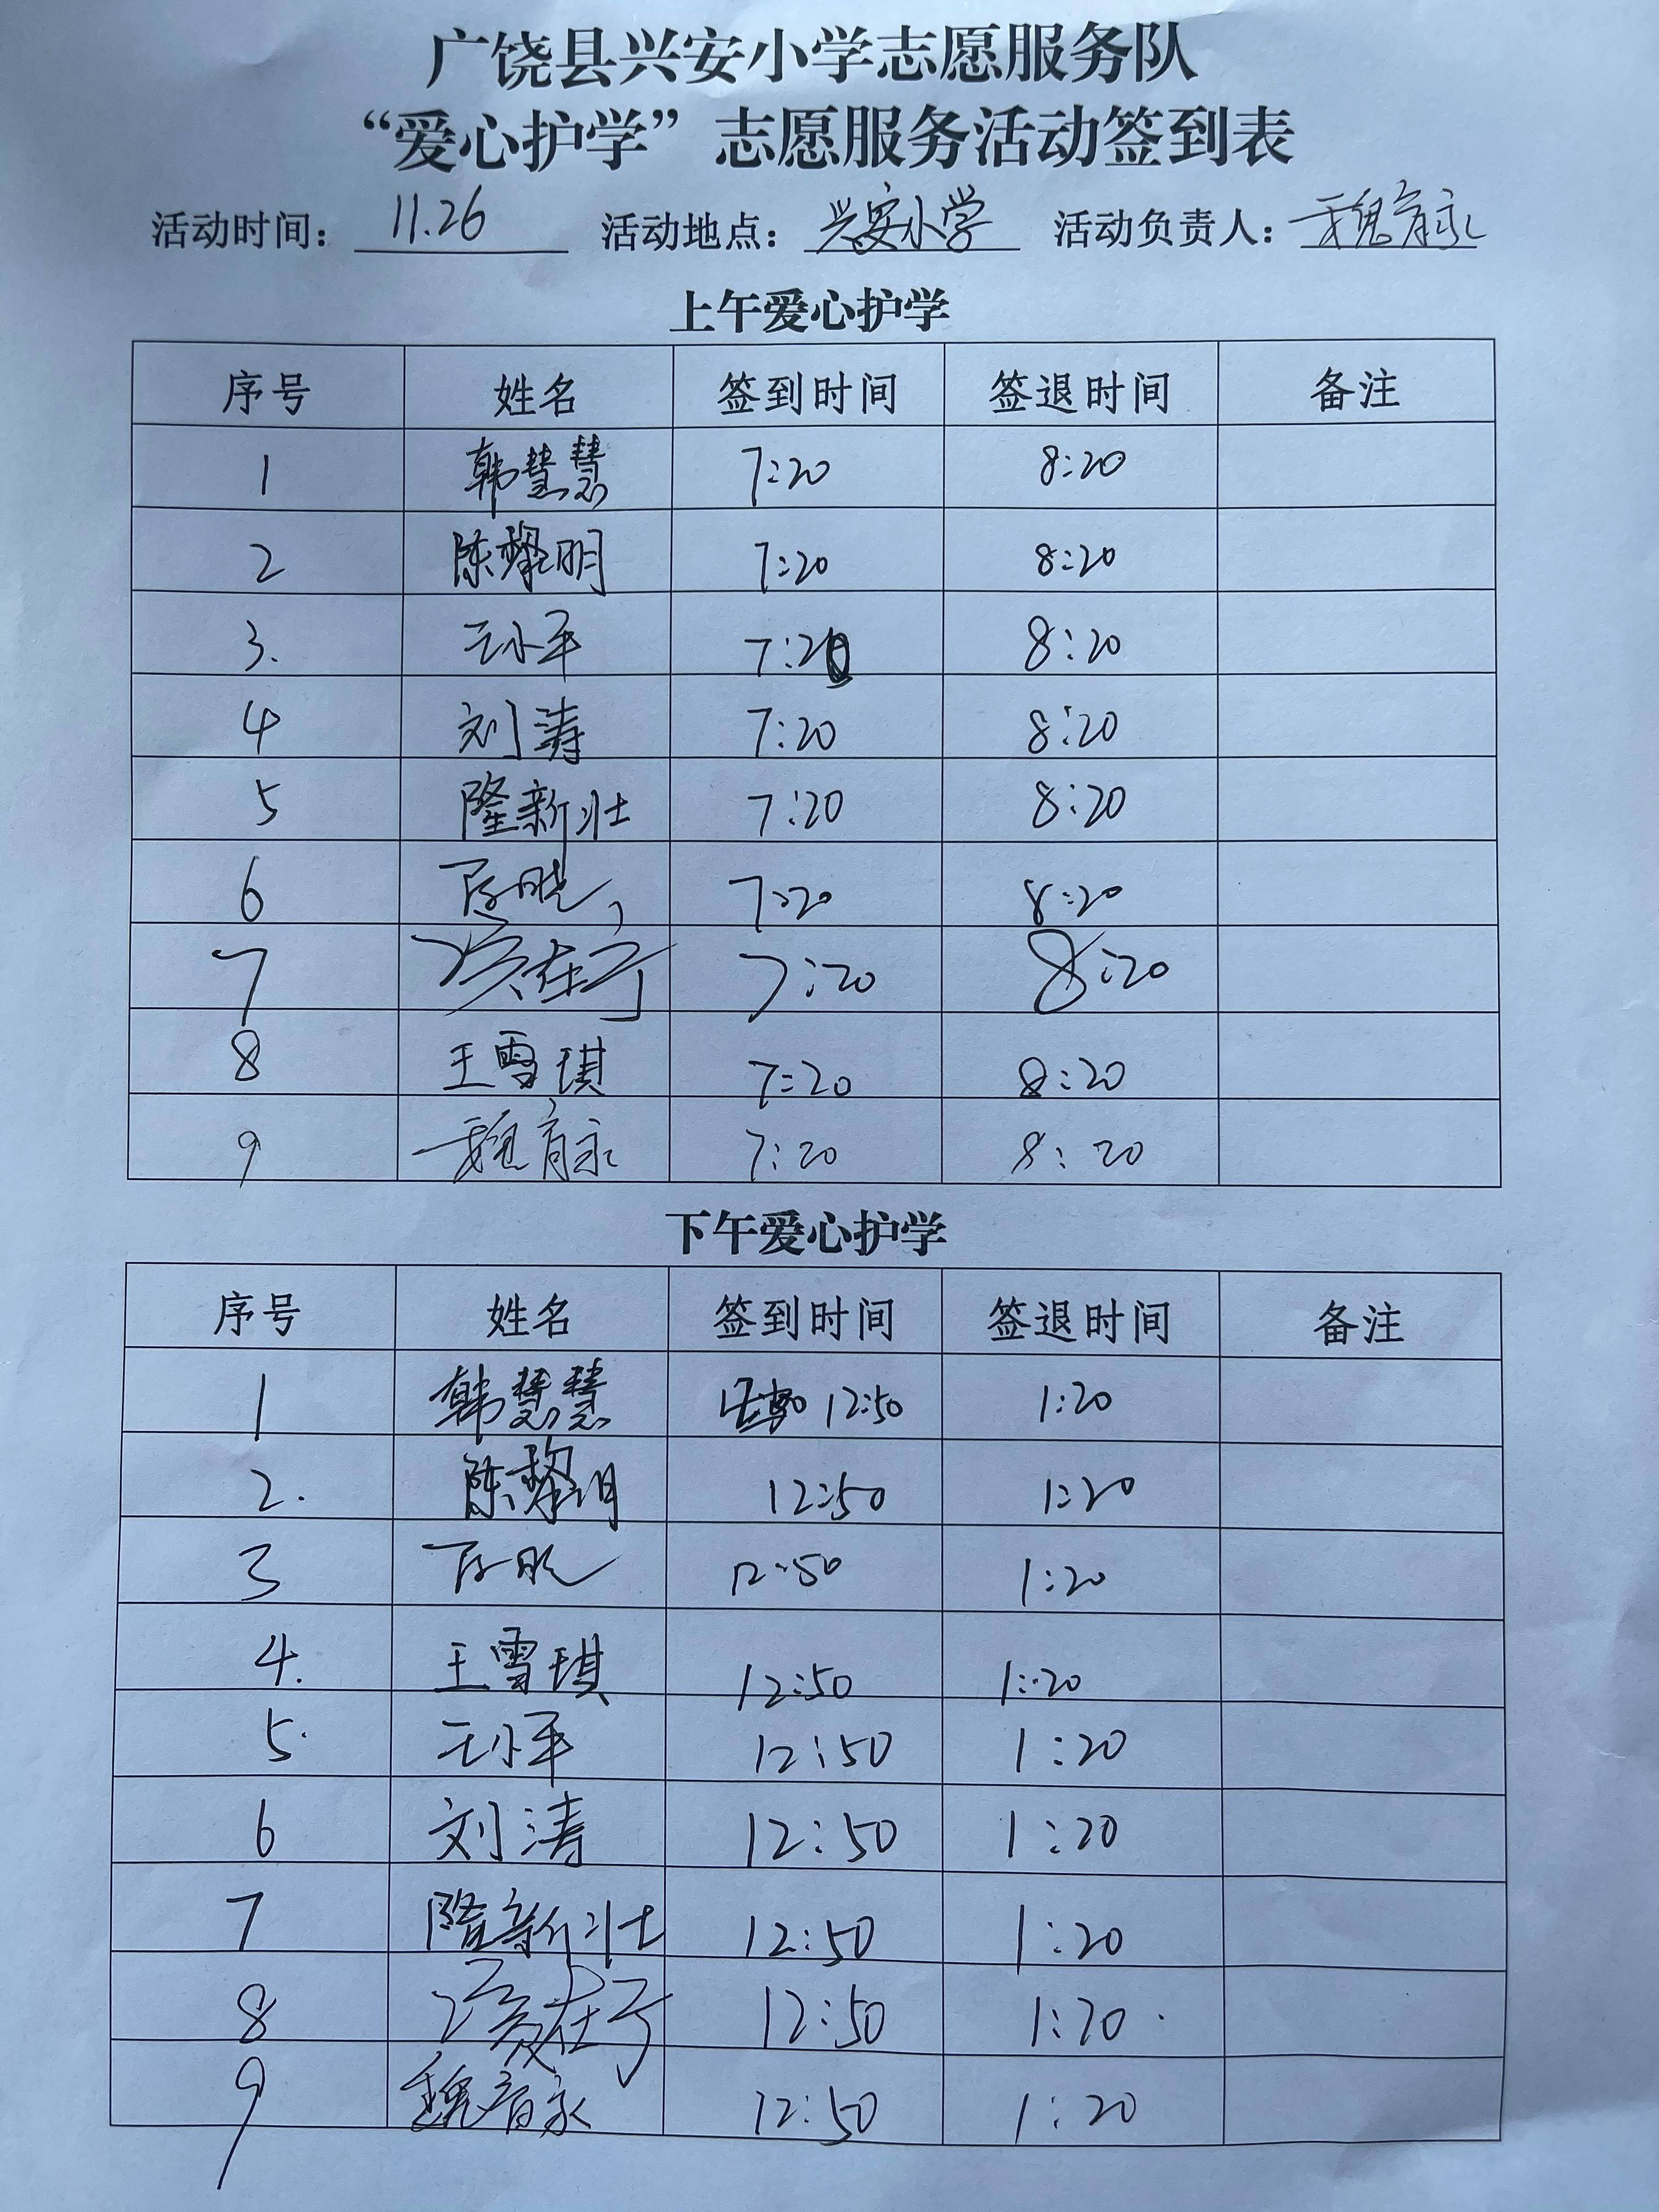 广饶县兴安小学志愿服务队
“爱心护学”志愿服务活动签到表
活动时间: 11.26 活动地点: 兴安小学 活动负责人: 魏育永
上午爱心护学
序号 姓名 签到时间 签退时间 备注
1 韩慧慧 7:20 8:20
2 陈黎明 7:20 8:20
3. 王小平 7:20 8:20
4 刘涛 7:20 8:20
5 隆新壮 7:20 8:20
6 7:20 8:20
7 7:20 8:20
8 王雪琪 7:20 8:20
9 魏育永 7:20 8:20
下午爱心护学
序号 姓名 签到时间 签退时间 备注
1 韩慧慧 12:50 1:20
2. 陈黎明 12:50 1:20
3 12:50 1:20
4. 王雪琪 12:50 1:20
5. 王小平 12:50 1:20
6 刘涛 12:50 1:20
7 隆新壮 12:50 1:20
8 12:50 1:20
9 魏育永 12:50 1:20